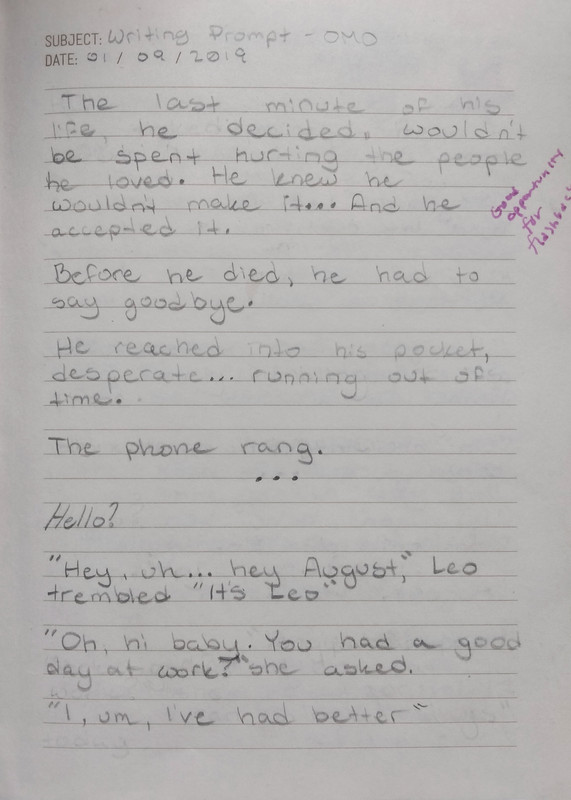 SUBJECT: Writing Prompt - OMO
DATE: 01 / 09 / 2019
The last minute of his
life, he decided, wouldn't
be spent hurting the people
he loved. He knew he
wouldn't make it... And he
accepted it.
Good
opportunity
for
flashback
Before he died, he had to
say goodbye.
He reached into his pocket,
desperate... running out of
time.
The phone rang.
...
Hello?
"Hey, uh... hey August," Leo
trembled "It's Leo"
"Oh, hi baby. You had a good
day at work?" she asked.
"I, um, I've had better"